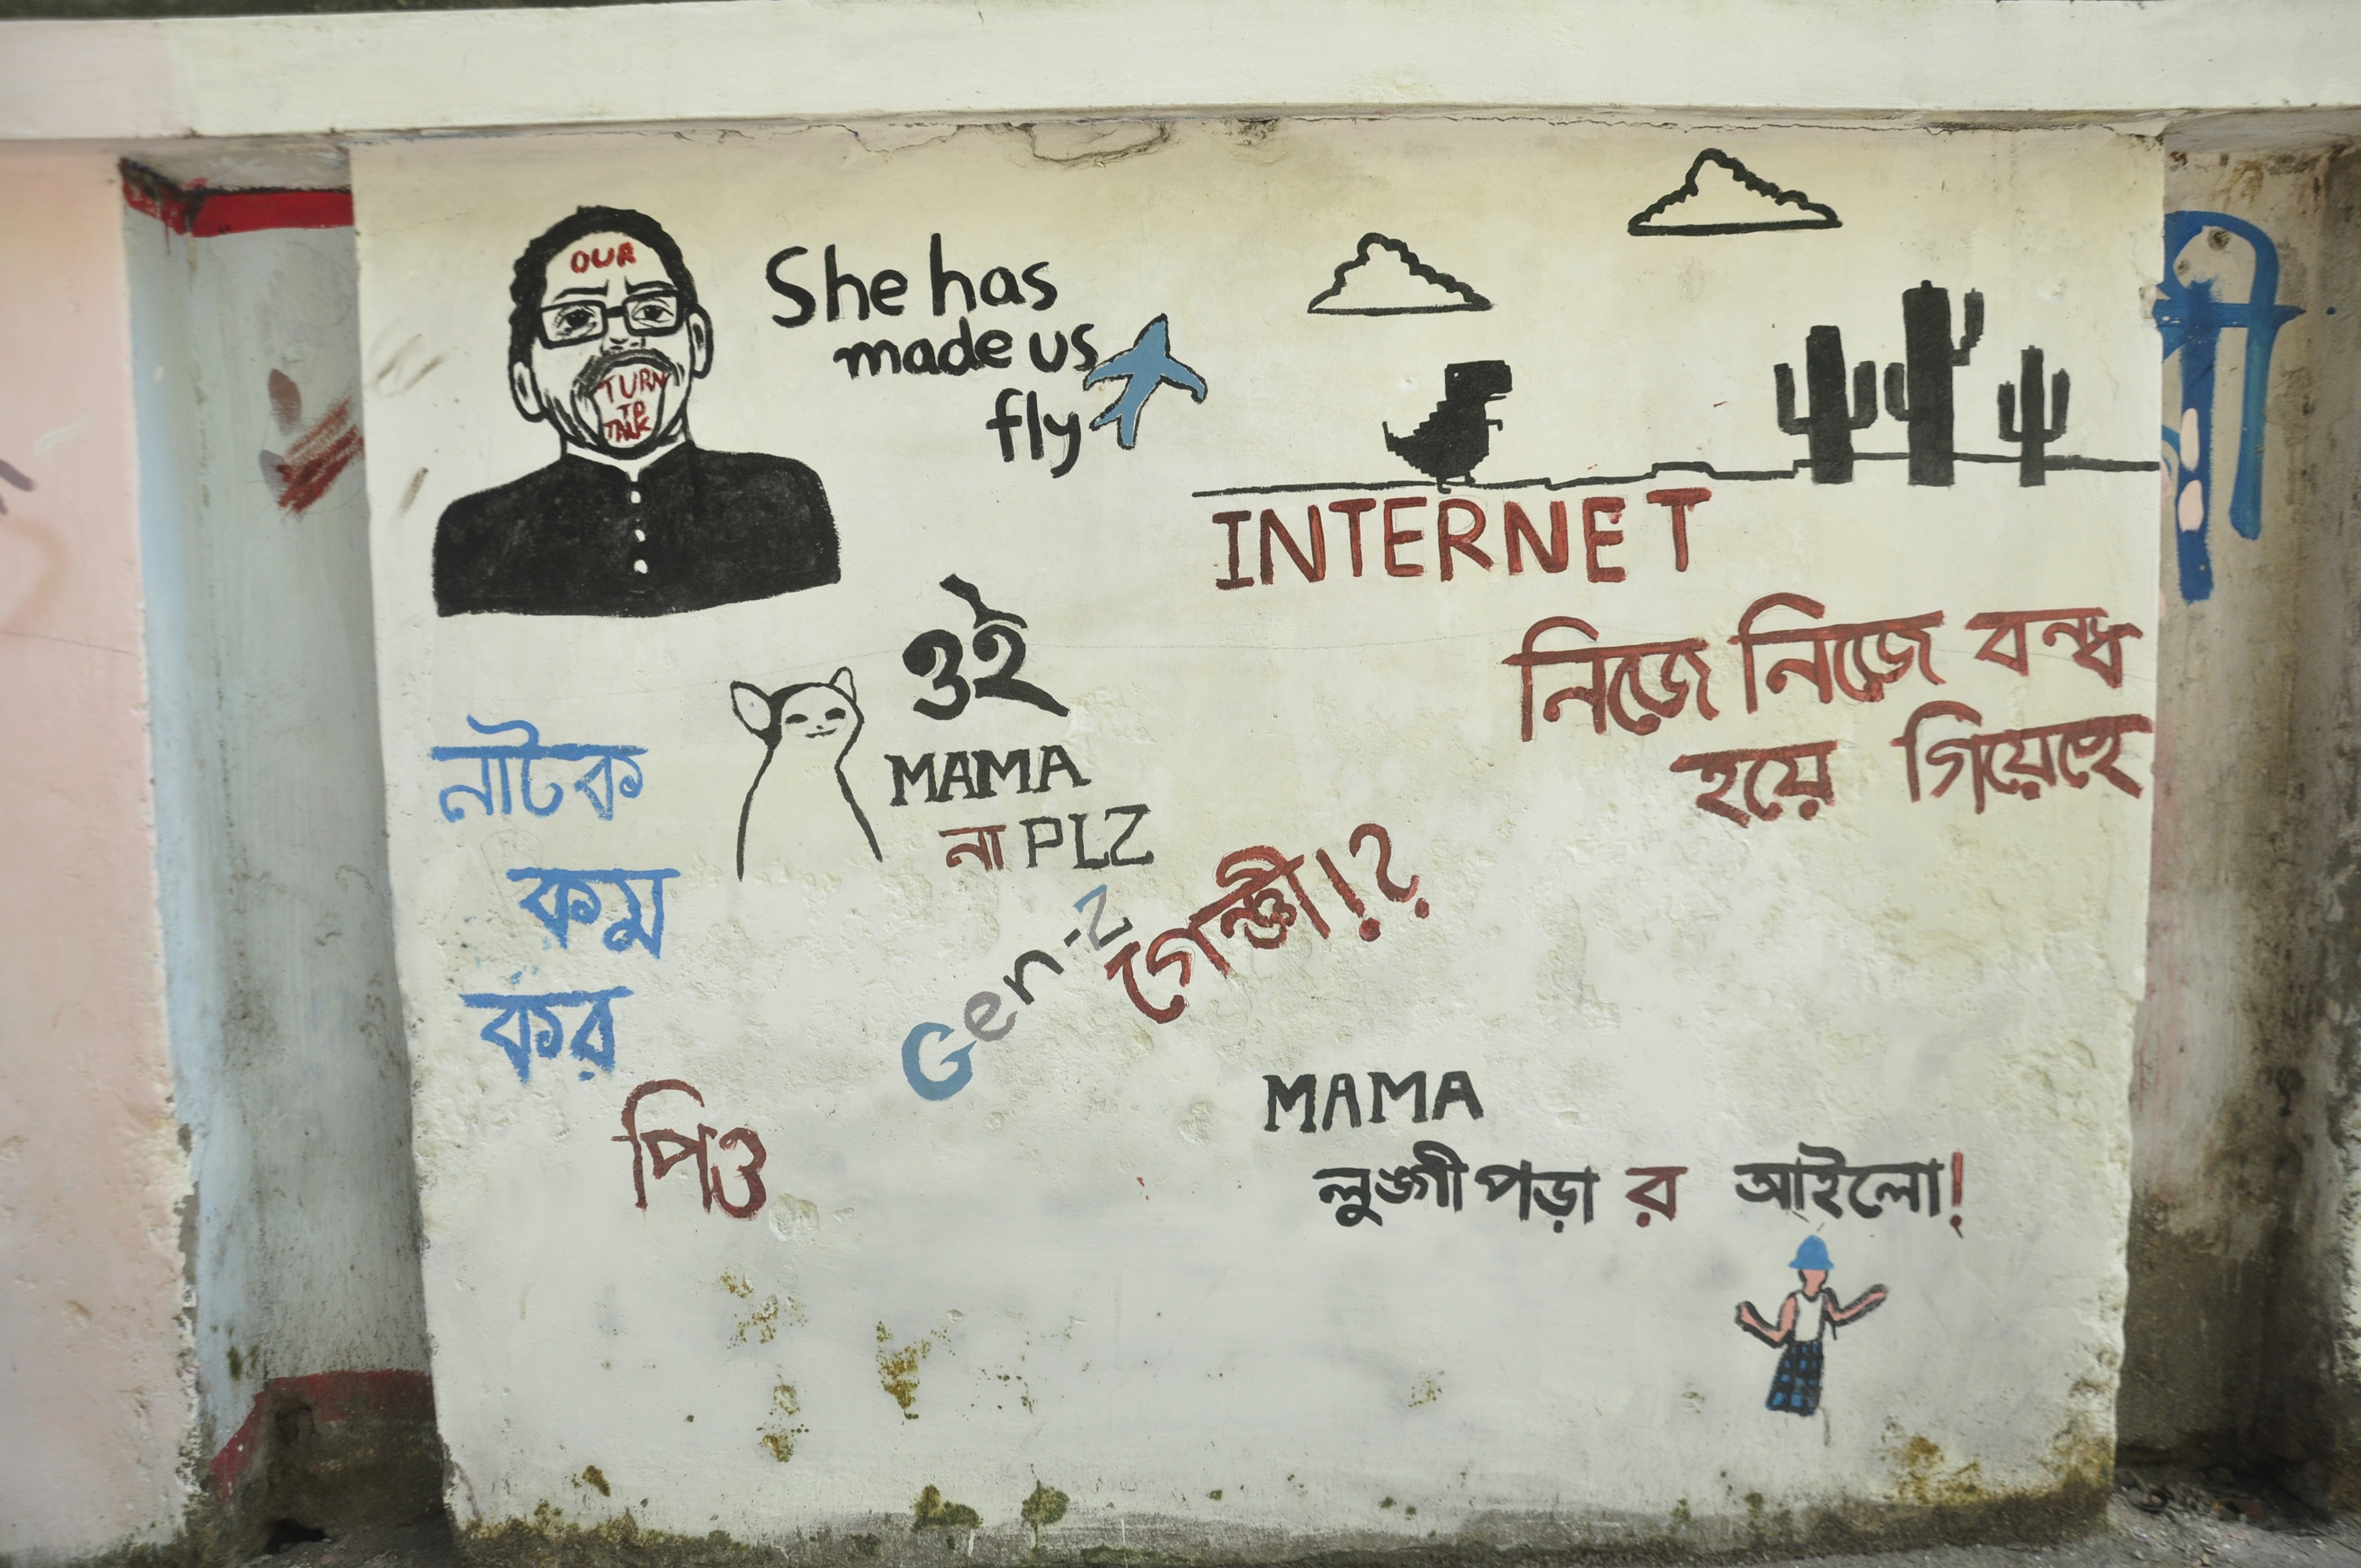 OUR
TURN
TO
TALK
She has
made us
fly
INTERNET
নিজে নিজে বন্ধ
হয়ে গিয়েছে
ওই
MAMA
না PLZ
নাটক
কম
কর
পিও
Gen-Z
গেন্জী!?
MAMA
লুঙ্গী পড়া র আইলো!